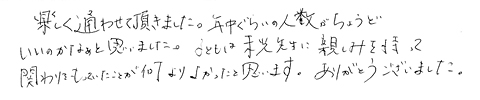 楽しく通わせて頂きました。年中ぐらいの人数がちょうど
いいのかなぁと思いました。子どもは 先生に親しみを持って
関わりをもっていたことが何よりよかったと思います。ありがとうございました。